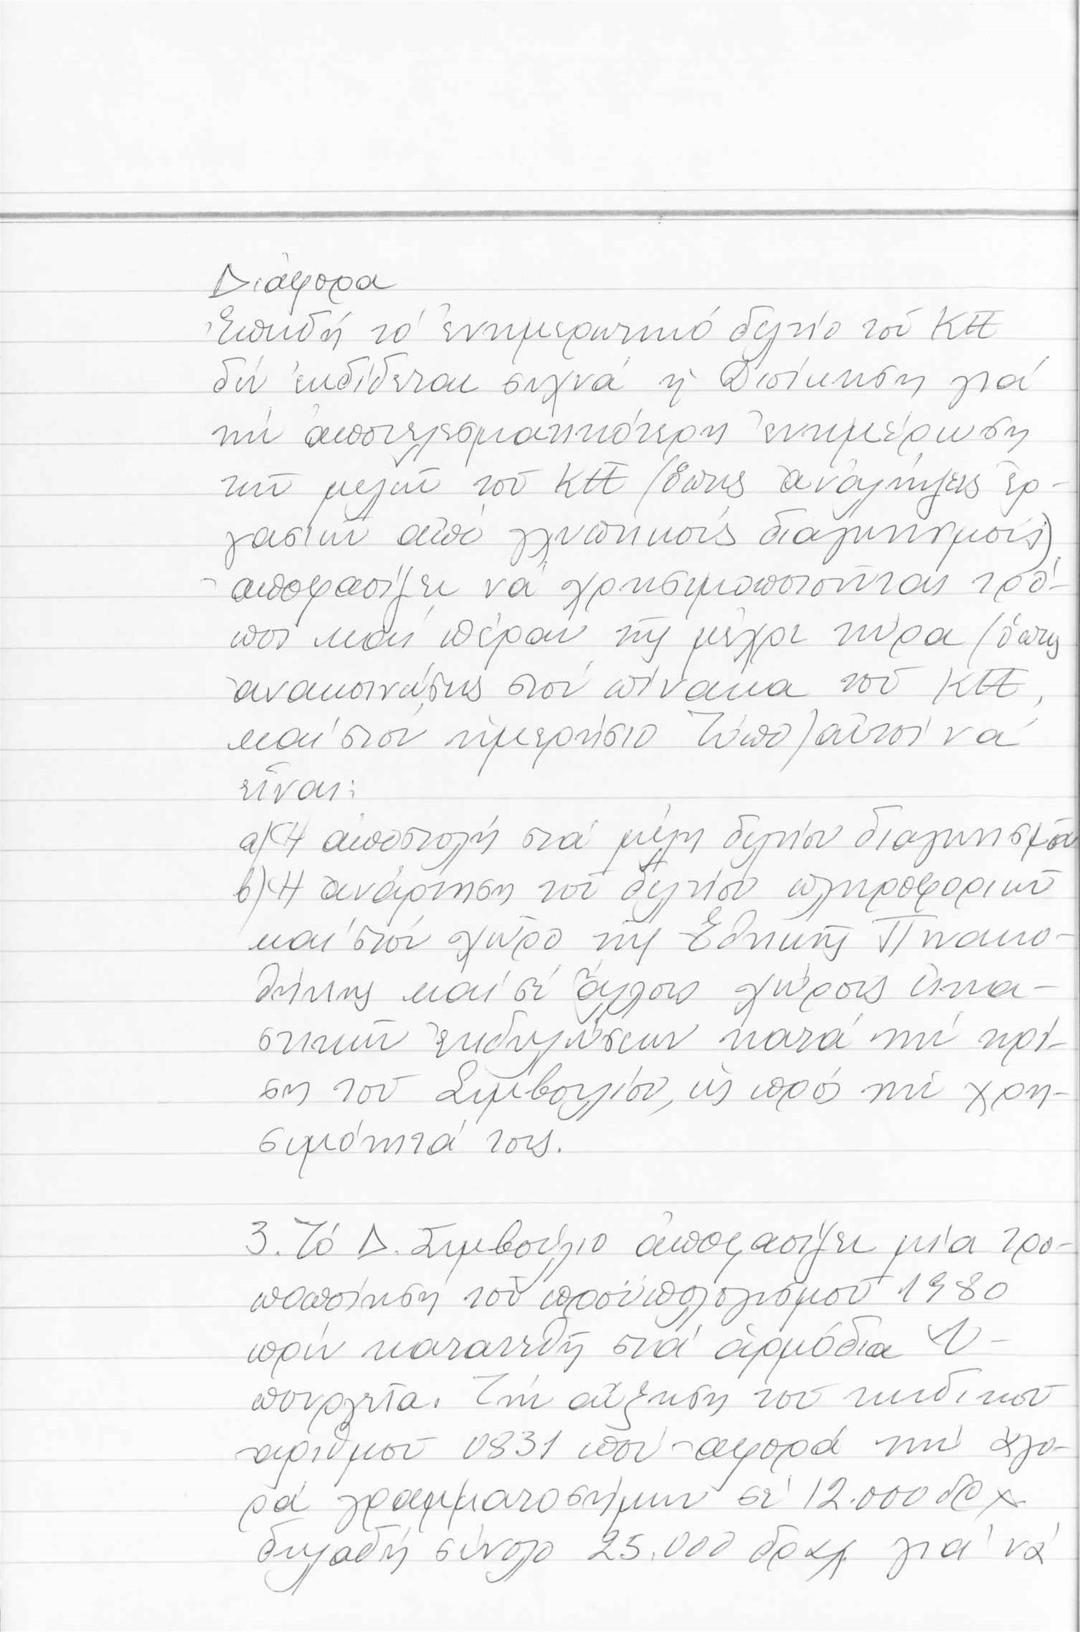 Διάφορα
Ἐπειδή τό ἐνημερωτικό δελτίο τοῦ ΚΕΕ
δέν ἐκδίδεται συχνά ἡ Διοίκηση γιά
τήν ἀποτελεσματικότερη ἐνημέρωση
τῶν μελῶν τοῦ ΚΕΕ (ὅπως ἀναλήψεις ἐρ-
γασιῶν ἀπό γλυπτικούς διαγωνισμούς)
ἀποφασίζει νά χρησιμοποιοῦνται τρό-
ποι καί πέραν τῆς μέχρι τώρα (ὅπως
ἀνακοινώσεις στόν πίνακα τοῦ ΚΕΕ,
καί στόν ἡμερήσιο Τύπο) αὐτοί νά
εἶναι:
α) Ἡ ἀποστολή στά μέλη δελτίου διαγωνισμῶν
β) Ἡ ἀνάρτηση τοῦ δελτίου πληροφοριῶν
καί στόν χῶρο τῆς Ἐθνικῆς Πινακο-
θήκης καί σέ ἄλλους χώρους εἰκα-
στικῶν ἐκδηλώσεων κατά τήν κρί-
ση τοῦ Συμβουλίου, ὡς πρός τήν χρη-
σιμότητά τους.
3. Τό Δ. Συμβούλιο ἀποφασίζει μία τρο-
ποποίηση τοῦ προϋπολογισμοῦ 1980
πρίν κατατεθῆ στά ἁρμόδια Ὑ-
πουργεῖα. Τήν αὔξηση τοῦ κωδικοῦ
ἀριθμοῦ 0831 πού ἀφορᾶ τήν ἀγο-
ρά γραμματοσήμων σέ 12.000 δρχ
δηλαδή σύνολο 25.000 δραχ. γιά νά